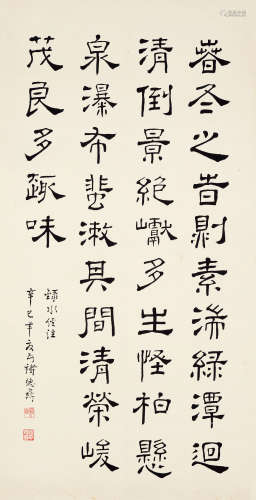 萅冬之旹則素湍綠潭迴
清倒景絕巘多生怪柏懸
泉瀑布蜚漱其間清榮峻
茂良多趣味
錄水經注
辛巳年夏褚德彝